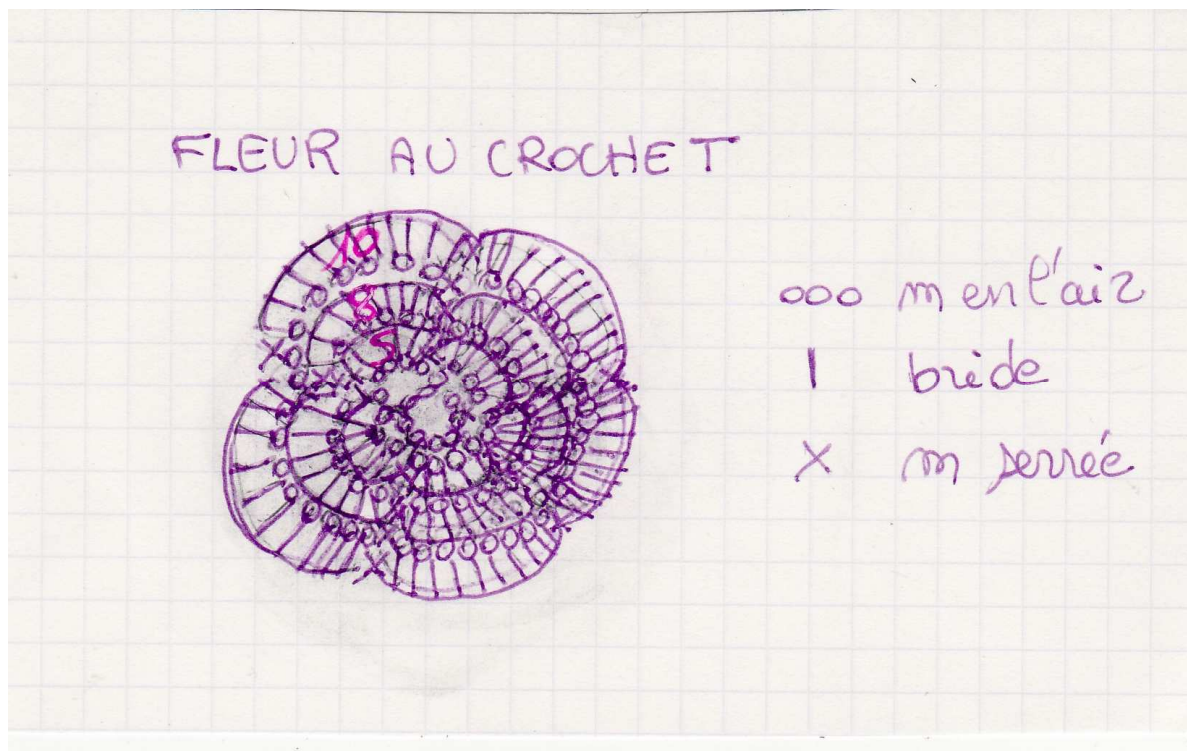 FLEUR AU CROCHET
10
8
5
ooo m en l'air
| bride
X m serrée